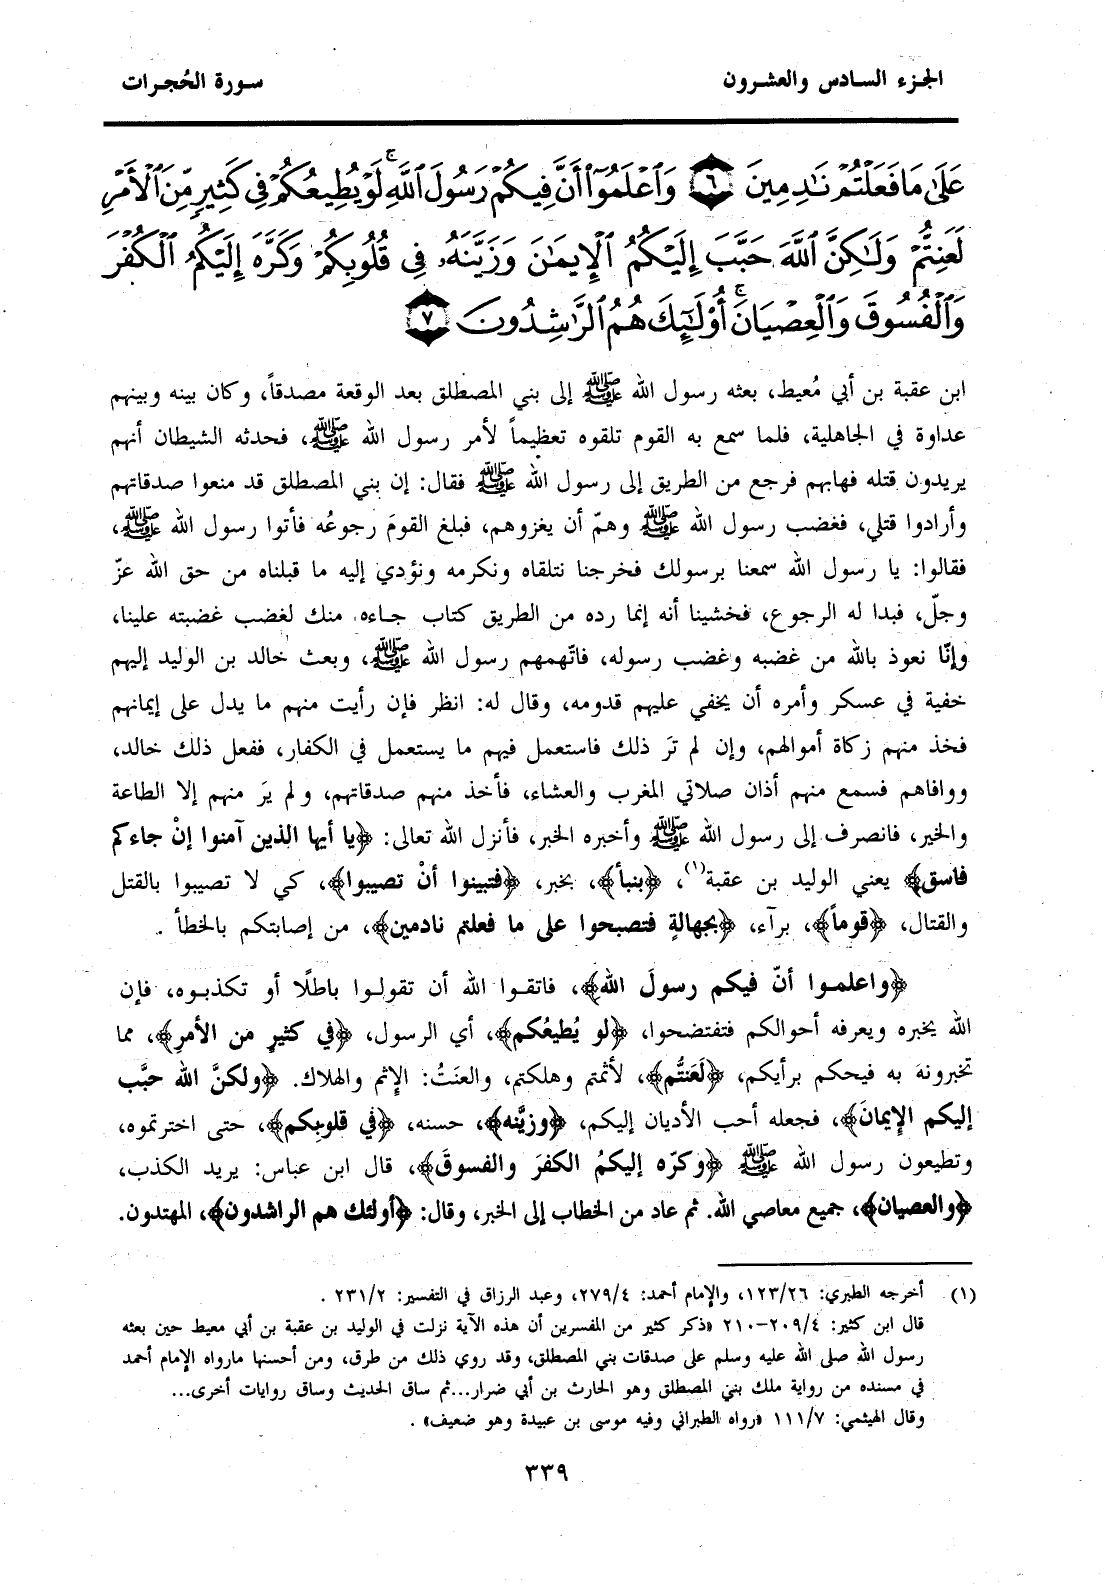 الجزء السادس والعشرون
سورة الحُجرات
عَلَىٰ مَا فَعَلْتُمْ نَٰدِمِينَ ٦ وَٱعْلَمُوٓا۟ أَنَّ فِيكُمْ رَسُولَ ٱللَّهِ ۚ لَوْ يُطِيعُكُمْ فِى كَثِيرٍ مِّنَ ٱلْأَمْرِ
لَعَنِتُّمْ وَلَٰكِنَّ ٱللَّهَ حَبَّبَ إِلَيْكُمُ ٱلْإِيمَٰنَ وَزَيَّنَهُۥ فِى قُلُوبِكُمْ وَكَرَّهَ إِلَيْكُمُ ٱلْكُفْرَ
وَٱلْفُسُوقَ وَٱلْعِصْيَانَ ۚ أُو۟لَٰٓئِكَ هُمُ ٱلرَّٰشِدُونَ ٧
ابن عقبة بن أبي مُعيط، بعثه رسول الله ﷺ إلى بني المصطلق بعد الوقعة مصدقاً، وكان بينه وبينهم
عداوة في الجاهلية، فلما سمع به القوم تلقوه تعظيماً لأمر رسول الله ﷺ، فحدثه الشيطان أنهم
يريدون قتله فهابهم فرجع من الطريق إلى رسول الله ﷺ فقال: إن بني المصطلق قد منعوا صدقاتهم
وأرادوا قتلي، فغضب رسول الله ﷺ وهمّ أن يغزوهم، فبلغ القومَ رجوعُه فأتوا رسول الله ﷺ،
فقالوا: يا رسول الله سمعنا برسولك فخرجنا نتلقاه ونكرمه ونؤدي إليه ما قبلناه من حق الله عزّ
وجلّ، فبدا له الرجوع، فخشينا أنه إنما رده من الطريق كتاب جاءه منك لغضب غضبته علينا،
وإنّا نعوذ بالله من غضبه وغضب رسوله، فاتّهمهم رسول الله ﷺ، وبعث خالد بن الوليد إليهم
خفية في عسكر وأمره أن يخفي عليهم قدومه، وقال له: انظر فإن رأيت منهم ما يدل على إيمانهم
فخذ منهم زكاة أموالهم، وإن لم ترَ ذلك فاستعمل فيهم ما يستعمل في الكفار، ففعل ذلك خالد،
ووافاهم فسمع منهم أذان صلاتي المغرب والعشاء، فأخذ منهم صدقاتهم، ولم يرَ منهم إلا الطاعة
والخير، فانصرف إلى رسول الله ﷺ وأخبره الخبر، فأنزل الله تعالى: ﴿يا أيها الذين آمنوا إنْ جاءكم
فاسق﴾ يعني الوليد بن عقبة(١)، ﴿بنبأ﴾، بخبر، ﴿فتبينوا أنْ تصيبوا﴾، كي لا تصيبوا بالقتل
والقتال، ﴿قوماً﴾، برآء، ﴿بجهالةٍ فتصبحوا على ما فعلتم نادمين﴾، من إصابتكم بالخطأ .
﴿واعلموا أنّ فيكم رسولَ الله﴾، فاتقوا الله أن تقولوا باطلًا أو تكذبوه، فإن
الله يخبره ويعرفه أحوالكم فتفتضحوا، ﴿لو يُطيعُكم﴾، أي الرسول، ﴿في كثيرٍ من الأمرِ﴾، مما
تخبرونه به فيحكم برأيكم، ﴿لَعَنتُّم﴾، لأثمتم وهلكتم، والعنَتُ: الإثم والهلاك. ﴿ولكنَّ الله حبَّب
إليكم الإيمانَ﴾، فجعله أحب الأديان إليكم، ﴿وزيَّنه﴾، حسنه، ﴿في قلوبِكم﴾، حتى اخترتموه،
وتطيعون رسول الله ﷺ ﴿وكرّه إليكمُ الكفرَ والفسوقَ﴾، قال ابن عباس: يريد الكذب،
﴿والعصيان﴾، جميع معاصي الله. ثم عاد من الخطاب إلى الخبر، وقال: ﴿أولئك هم الراشدون﴾، المهتدون.
(١) أخرجه الطبري: ١٢٣/٢٦، والإمام أحمد: ٢٧٩/٤، وعبد الرزاق في التفسير: ٢٣١/٢ .
قال ابن كثير: ٢٠٩/٤-٢١٠ «ذكر كثير من المفسرين أن هذه الآية نزلت في الوليد بن عقبة بن أبي معيط حين بعثه
رسول الله صلى الله عليه وسلم على صدقات بني المصطلق، وقد روي ذلك من طرق، ومن أحسنها مارواه الإمام أحمد
في مسنده من رواية ملك بني المصطلق وهو الحارث بن أبي ضرار...ثم ساق الحديث وساق روايات أخرى...
وقال الهيثمي: ١١١/٧ «رواه الطبراني وفيه موسى بن عبيدة وهو ضعيف» .
٣٣٩